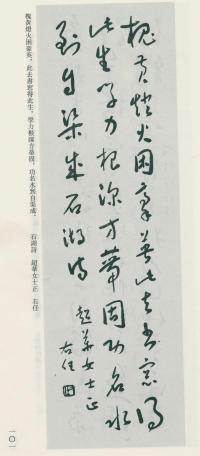 槐黃燈火困豪英此去書窗得
此生學力根深方蒂固功名水
到自渠成石湖詩
超華女士正
右任
槐黃燈火困豪英，此去書窗得此生，學力根深方蒂固，功名水到自渠成。　石湖詩　超華女士正　右任
一〇一